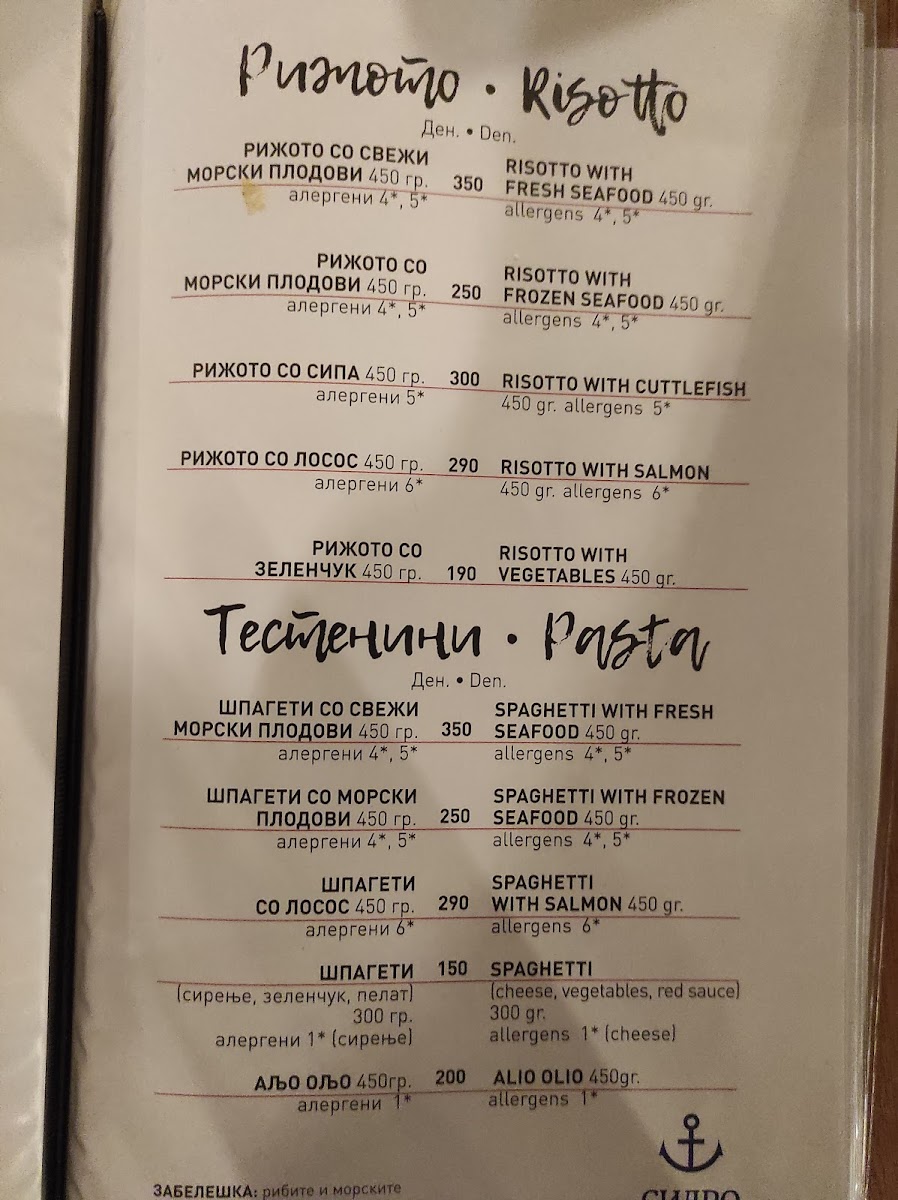 Рижото • Risotto
Ден. • Den.
РИЖОТО СО СВЕЖИ
МОРСКИ ПЛОДОВИ 450 гр.
алергени 4*, 5*
350
RISOTTO WITH
FRESH SEAFOOD 450 gr.
allergens 4*, 5*
РИЖОТО СО
МОРСКИ ПЛОДОВИ 450 гр.
алергени 4*, 5*
250
RISOTTO WITH
FROZEN SEAFOOD 450 gr.
allergens 4*, 5*
РИЖОТО СО СИПА 450 гр.
алергени 5*
300
RISOTTO WITH CUTTLEFISH
450 gr. allergens 5*
РИЖОТО СО ЛОСОС 450 гр.
алергени 6*
290
RISOTTO WITH SALMON
450 gr. allergens 6*
РИЖОТО СО
ЗЕЛЕНЧУК 450 гр.
190
RISOTTO WITH
VEGETABLES 450 gr.
Тестенини • Pasta
Ден. • Den.
ШПАГЕТИ СО СВЕЖИ
МОРСКИ ПЛОДОВИ 450 гр.
алергени 4*, 5*
350
SPAGHETTI WITH FRESH
SEAFOOD 450 gr.
allergens 4*, 5*
ШПАГЕТИ СО МОРСКИ
ПЛОДОВИ 450 гр.
алергени 4*, 5*
250
SPAGHETTI WITH FROZEN
SEAFOOD 450 gr.
allergens 4*, 5*
ШПАГЕТИ
СО ЛОСОС 450 гр.
алергени 6*
290
SPAGHETTI
WITH SALMON 450 gr.
allergens 6*
ШПАГЕТИ
(сирење, зеленчук, пелат)
300 гр.
алергени 1* (сирење)
150
SPAGHETTI
(cheese, vegetables, red sauce)
300 gr.
allergens 1* (cheese)
АЉО ОЉО 450гр.
алергени 1*
200
ALIO OLIO 450gr.
allergens 1*
ЗАБЕЛЕШКА: рибите и морските